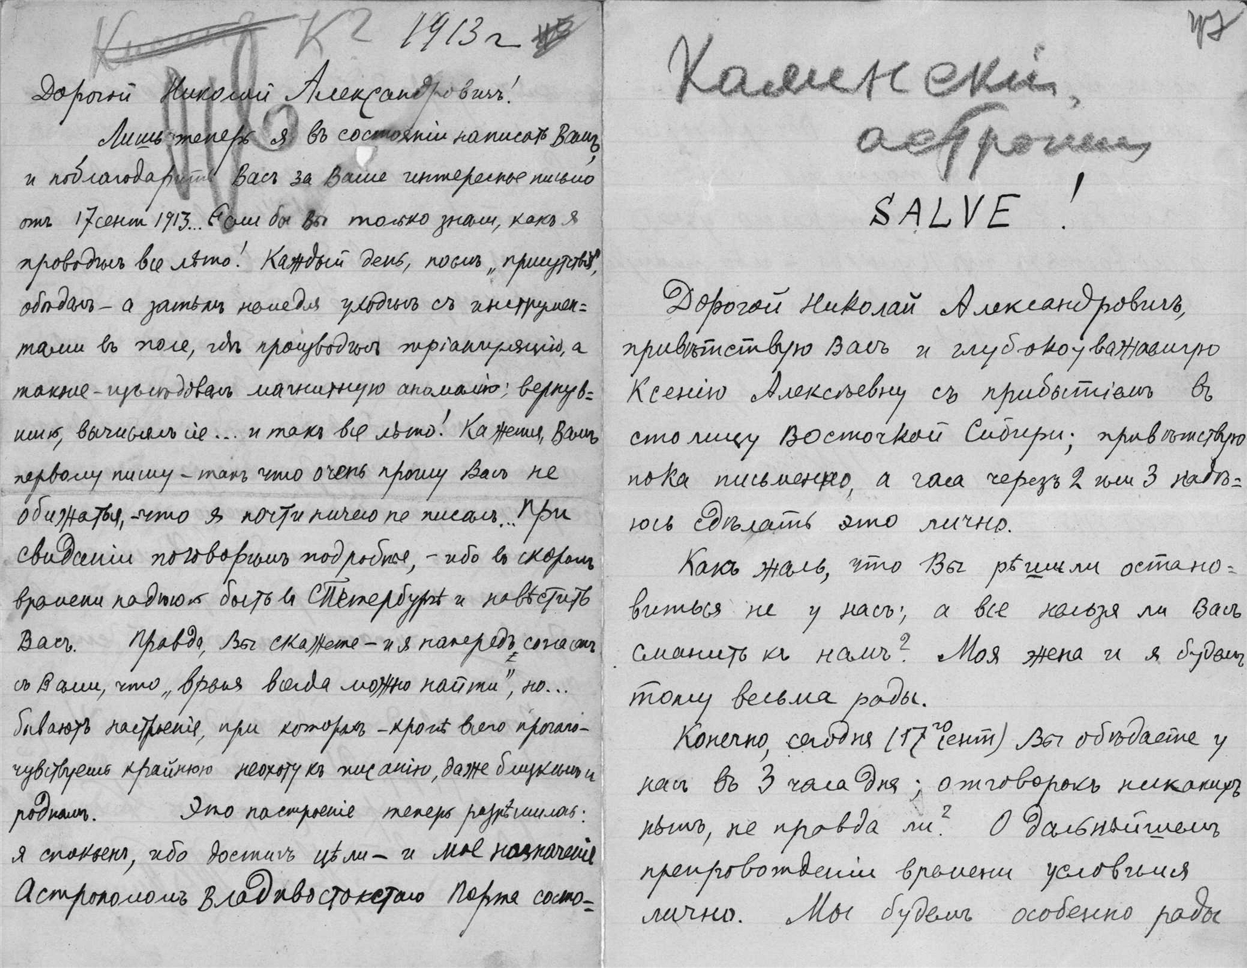 К2 1913 г
Дорогой Николай Александровичъ!
Лишь теперь я въ состоянiи написать Вамъ,
и поблагодарить Васъ за Ваше интересное письмо
отъ 17 сент 1913... Если бы Вы только знали, какъ я
проводилъ все лѣто! Каждый день, послѣ „присутствiя",
обѣдалъ – а затѣмъ наmedля уходилъ съ инструмен=
тами въ поле, гдѣ производилъ трiангуляцiю, а
также – изслѣдовалъ магнитную аномалiю; вернув=
шись, вычислялъ ее... и такъ все лѣто! Кажется, Вамъ
первому пишу – такъ что очень прошу Васъ не
обижаться, – что я почти ничего не писалъ... При
свиданiи поговоримъ подробнѣе, – ибо въ скоромъ
времени надѣюсь быть въ СПетербургѣ и навѣстить
Васъ. Правда, Вы скажете – и я напередъ согласенъ
съ Вами, что „время всегда можно найти", но...
бываютъ настроенiя, при которыхъ – кромѣ всего прочаго –
чувствуешь крайнюю неохоту къ писанiю, даже близкимъ и
роднымъ. Это настроенiе теперь разрѣшилось:
я спокоенъ, ибо достигъ цѣли – и мое назначенiе
Астрономомъ Владивостокскаго Порта состо=
47
Каминскiй,
астрономъ
SALVE!
Дорогой Николай Александровичъ,
привѣтствую Васъ и глубокоуважаемую
Ксенiю Алексѣевну съ прибытiемъ въ
столицу Восточной Сибири; привѣтствую
пока письменно, а часа черезъ 2 или 3 надѣ=
юсь сдѣлать это лично.
Какъ жаль, что Вы рѣшили остано=
виться не у насъ; а все нельзя ли Васъ
сманить къ намъ? Моя жена и я будемъ
тому весьма рады.
Конечно, сегодня (17го сент) Вы обѣдаете у
насъ въ 3 часа дня; отговорокъ никакихъ
нѣтъ, не правда ли? О дальнѣйшемъ
препровожденiи времени условимся
лично. Мы будемъ особенно рады